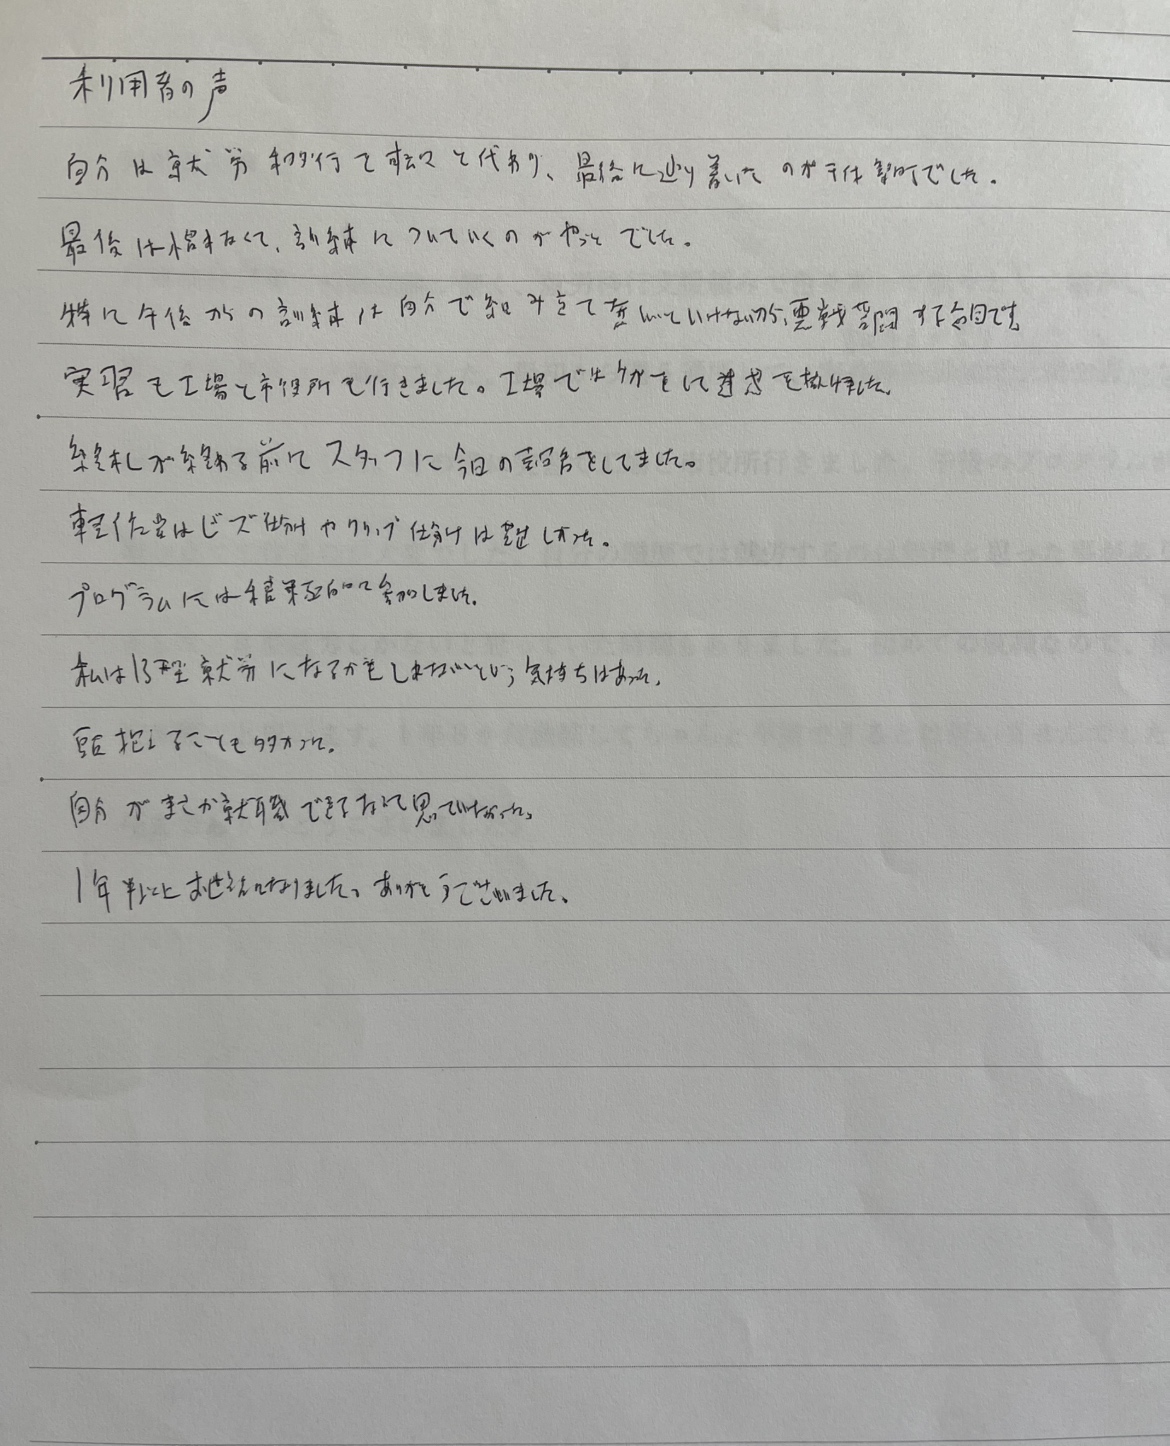 利用者の声
自分は就労移行で転々と代わり、最後に辿り着いたのが
最後は慣れなくて、訓練についていくのがやっとでした。
特に午後からの訓練は自分で組み立てていけないから、悪戦苦闘する毎日です。
実習も工場と市役所も行きました。工場ではケガをして迷惑を掛けました。
終礼が終わる前にスタッフに今日の報告をしてました。
軽作業はビーズ仕分けやクリップ仕分けは難しかった。
プログラムには積極的に参加しました。
私はB型就労になるかもしれないという気持ちはあった。
頭抱えることも多かった。
自分がまさか就職できるなんて思っていなかった。
1年半以上お世話になりました。ありがとうございました。